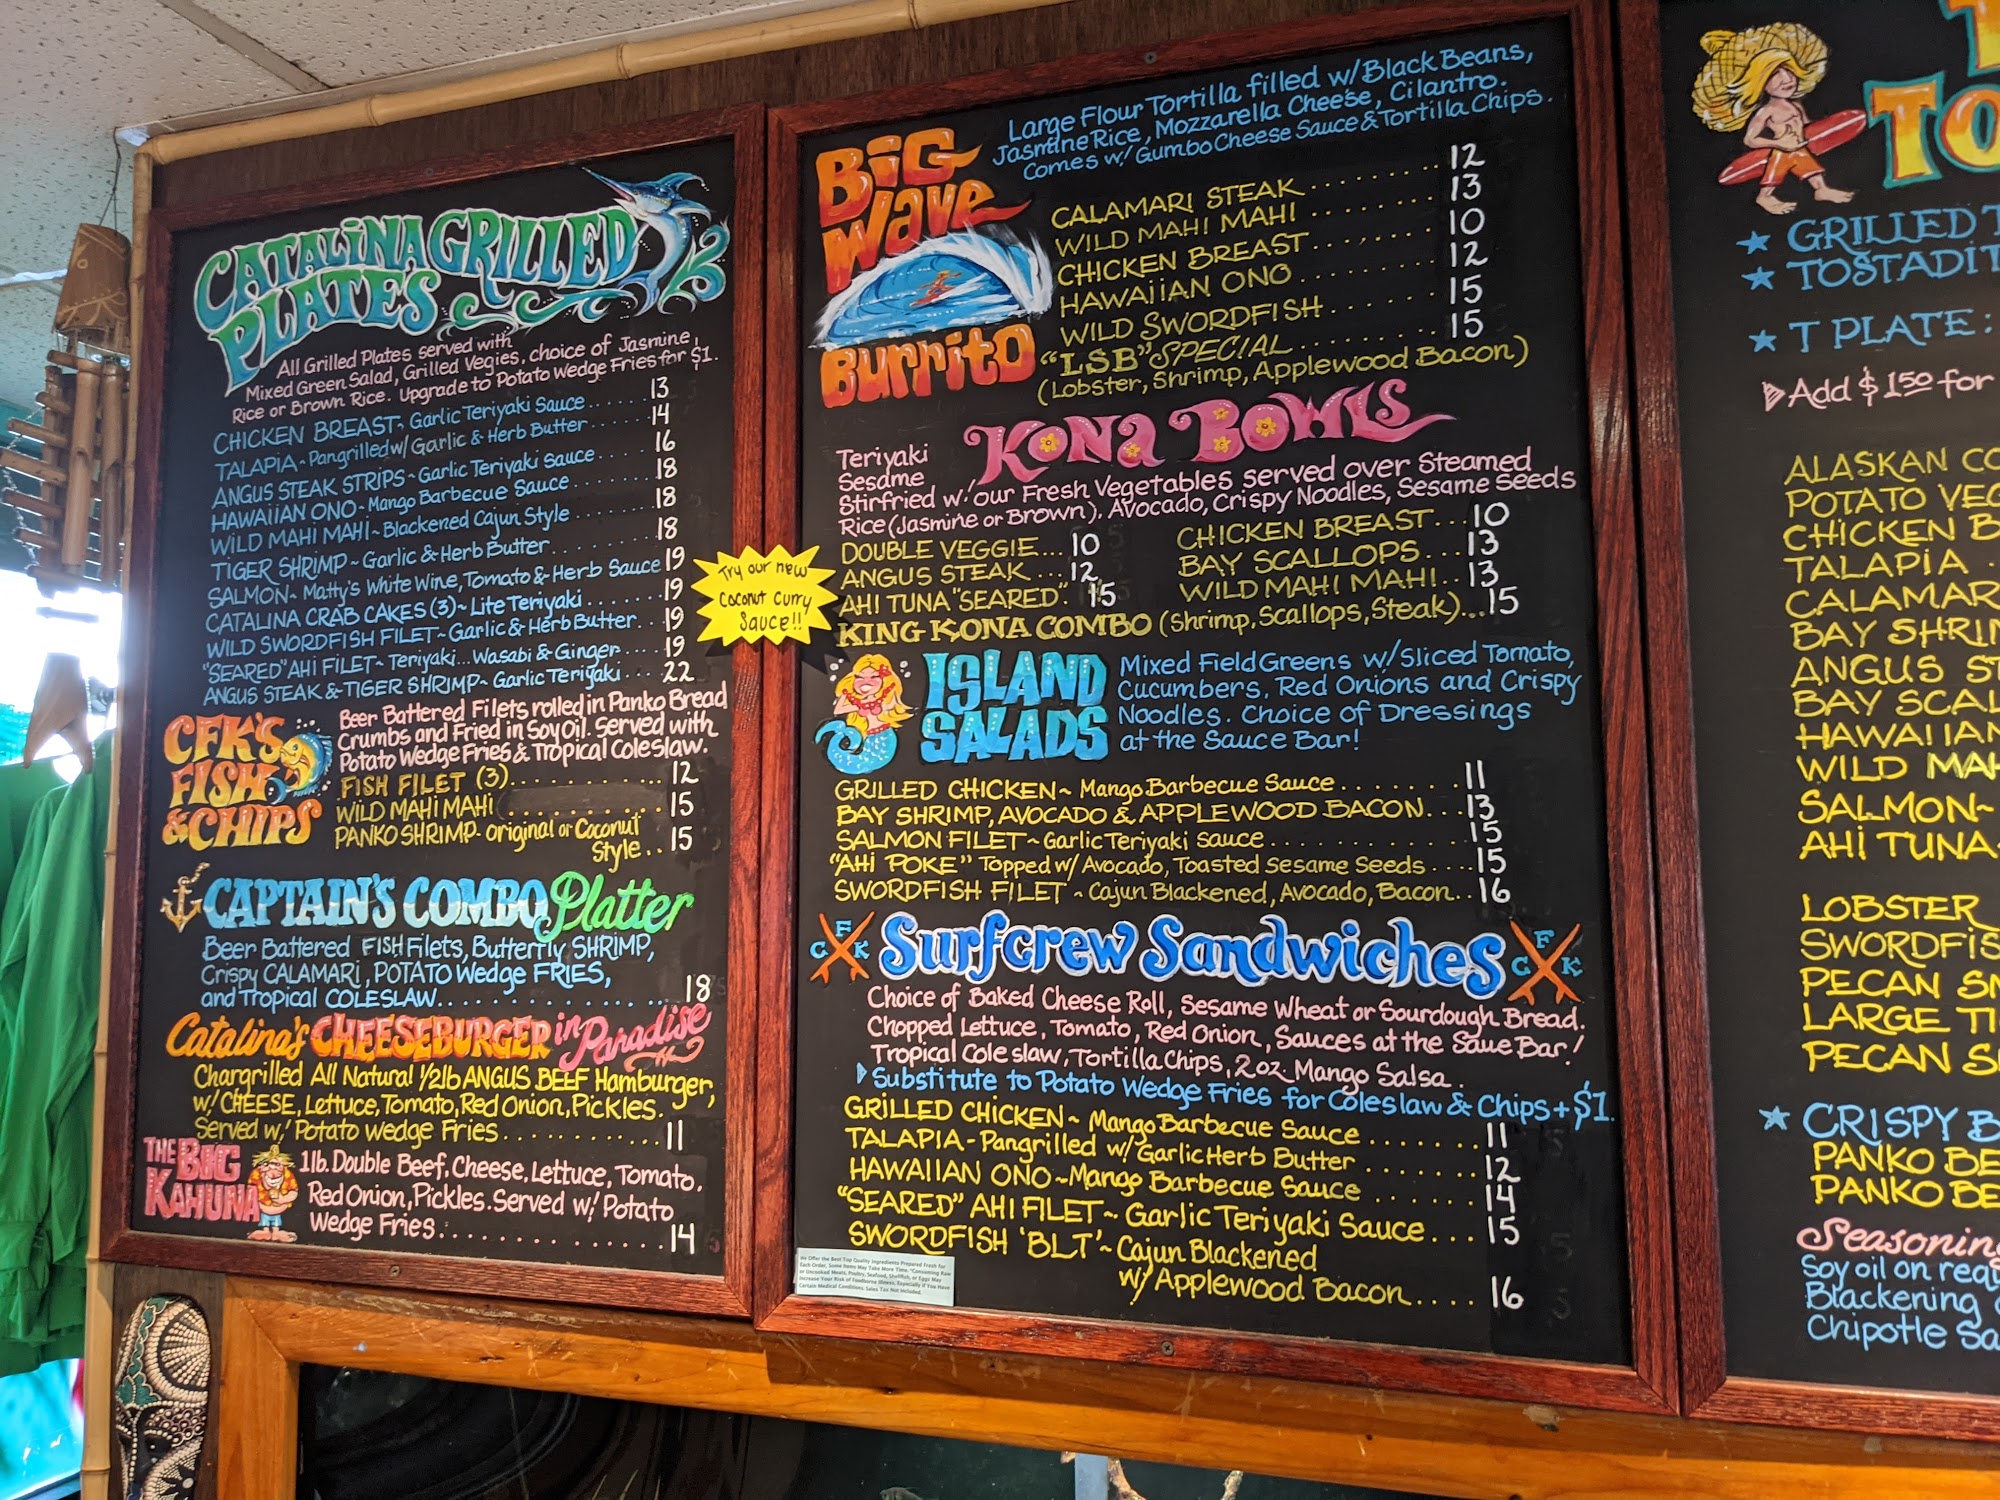 CATALINA GRILLED
PLATES
All Grilled Plates served with
Mixed Green Salad, Grilled Vegies, choice of Jasmine,
Rice or Brown Rice. Upgrade to Potato Wedge Fries for $1.
CHICKEN BREAST~ Garlic Teriyaki Sauce...... 13
TALAPIA~ Pangrilled w/ Garlic & Herb Butter...... 14
ANGUS STEAK STRIPS~ Garlic Teriyaki Sauce..... 16
HAWAIIAN ONO~ Mango Barbecue Sauce........ 18
WILD MAHI MAHI~ Blackened Cajun Style........ 18
TIGER SHRIMP~ Garlic & Herb Butter......... 18
SALMON~ Matty's White Wine, Tomato & Herb Sauce 19
CATALINA CRAB CAKES (3)~ Lite Teriyaki........ 19
WILD SWORDFISH FILET~ Garlic & Herb Butter... 19
"SEARED" AHI FILET~ Teriyaki... Wasabi & Ginger.... 19
ANGUS STEAK & TIGER SHRIMP~ Garlic Teriyaki... 22
CFK'S
FISH
& CHIPS
Beer Battered Filets rolled in Panko Bread
Crumbs and Fried in Soy Oil. Served with
Potato Wedge Fries & Tropical Coleslaw.
FISH FILET (3)............... 12
WILD MAHI MAHI............... 15
PANKO SHRIMP- Original or Coconut
Style.. 15
CAPTAIN'S COMBO Platter
Beer Battered FISH Filets, Butterfly SHRIMP,
Crispy CALAMARI, POTATO Wedge FRIES,
and Tropical COLESLAW.................. 18
Catalina's CHEESEBURGER in Paradise
Chargrilled All Natural 1/2lb ANGUS BEEF Hamburger,
w/ CHEESE, Lettuce, Tomato, Red Onion, Pickles.
Served w/ Potato Wedge Fries............. 11
THE BIG
KAHUNA
1lb. Double Beef, Cheese, Lettuce, Tomato,
Red Onion, Pickles. Served w/ Potato
Wedge Fries................ 14
Try our new
Coconut Curry
Sauce!!
BIG
Wave
BURRITO
Large Flour Tortilla filled w/ Black Beans,
Jasmine Rice, Mozzarella Cheese, Cilantro.
Comes w/ Gumbo Cheese Sauce & Tortilla Chips.
CALAMARI STEAK.......... 12
WILD MAHI MAHI.......... 13
CHICKEN BREAST.......... 10
HAWAIIAN ONO.......... 12
WILD SWORDFISH.......... 15
"LSB" SPECIAL.......... 15
(Lobster, Shrimp, Applewood Bacon)
KONA BOWLS
Teriyaki
Sesame
Stirfried w/ our Fresh Vegetables served over Steamed
Rice (Jasmine or Brown), Avocado, Crispy Noodles, Sesame Seeds
DOUBLE VEGGIE... 10
ANGUS STEAK... 12
AHI TUNA "SEARED". 15
CHICKEN BREAST... 10
BAY SCALLOPS... 13
WILD MAHI MAHI.. 13
KING KONA COMBO (Shrimp, Scallops, Steak)... 15
ISLAND
SALADS
Mixed Field Greens w/ Sliced Tomato,
Cucumbers, Red Onions and Crispy
Noodles. Choice of Dressings
at the Sauce Bar!
GRILLED CHICKEN~ Mango Barbecue Sauce....... 11
BAY SHRIMP, AVOCADO & APPLEWOOD BACON... 13
SALMON FILET~ Garlic Teriyaki Sauce............ 15
"AHI POKE" Topped w/ Avocado, Toasted Sesame Seeds.... 15
SWORDFISH FILET~ Cajun Blackened, Avocado, Bacon.. 16
CFK
Surfcrew Sandwiches
CFK
Choice of Baked Cheese Roll, Sesame Wheat or Sourdough Bread.
Chopped Lettuce, Tomato, Red Onion, Sauces at the Saue Bar!
Tropical Coleslaw, Tortilla Chips, 2oz. Mango Salsa.
Substitute to Potato Wedge Fries for Coleslaw & Chips + $1.
GRILLED CHICKEN~ Mango Barbecue Sauce....... 11
TALAPIA- Pangrilled w/ Garlic Herb Butter........ 12
HAWAIIAN ONO~ Mango Barbecue Sauce...... 14
"SEARED" AHI FILET~ Garlic Teriyaki Sauce... 15
SWORDFISH 'BLT'~ Cajun Blackened
w/ Applewood Bacon.... 16
We Offer the Best Top Quality Ingredients Prepared Fresh for
Each Order, Some Items May Take More Time. *Consuming Raw
or Uncooked Meats, Poultry, Seafood, Shellfish, or Eggs May
Increase Your Risk of Foodborne Illness, Especially if You Have
Certain Medical Conditions. Sales Tax Not Included.
GRILLED
TOSTADIT
T PLATE:
Add $1.50 for
ALASKAN CO
POTATO VEG
CHICKEN B
TALAPIA
CALAMAR
BAY SHRIM
ANGUS ST
BAY SCAL
HAWAIIAN
WILD MAH
SALMON~
AHI TUNA
LOBSTER
SWORDFIS
PECAN
LARGE TI
PECAN S
CRISPY B
PANKO BE
PANKO BE
Seasoning
Soy oil on
Blackening
Chipotle Sa